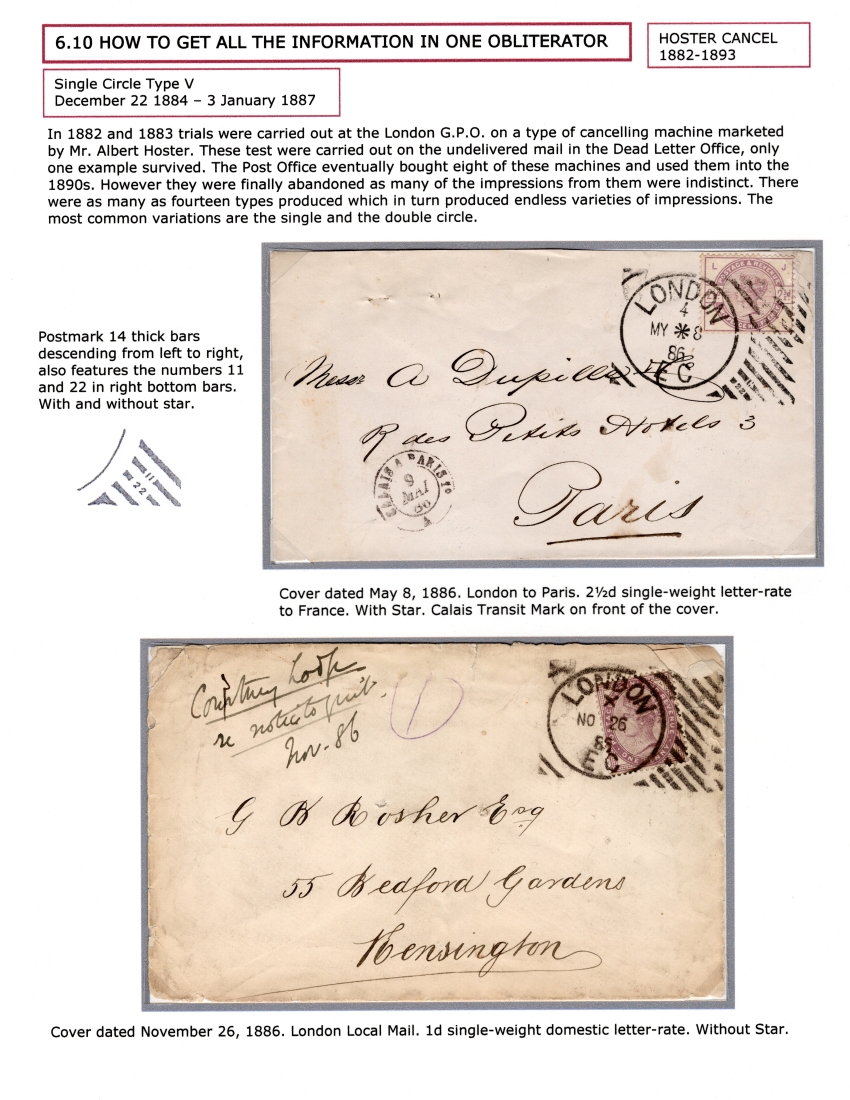 6.10 HOW TO GET ALL THE INFORMATION IN ONE OBLITERATOR
HOSTER CANCEL
1882-1893
Single Circle Type V
December 22 1884 – 3 January 1887
In 1882 and 1883 trials were carried out at the London G.P.O. on a type of cancelling machine marketed
by Mr. Albert Hoster. These test were carried out on the undelivered mail in the Dead Letter Office, only
one example survived. The Post Office eventually bought eight of these machines and used them into the
1890s. However they were finally abandoned as many of the impressions from them were indistinct. There
were as many as fourteen types produced which in turn produced endless varieties of impressions. The
most common variations are the single and the double circle.
Postmark 14 thick bars
descending from left to right,
also features the numbers 11
and 22 in right bottom bars.
With and without star.
11
22
L J
LONDON
4
MY * 8
86
E C
Messr A Dupille
R des Petits Hotels 3
Paris
CALAIS A PARIS 1º
9
MAI
86
A
Cover dated May 8, 1886. London to Paris. 2½d single-weight letter-rate
to France. With Star. Calais Transit Mark on front of the cover.
re notice to quit.
Nov. 86
1
LONDON
X
NO 26
E C
G B Rosher Esq
55 Bedford Gardens
Kensington
Cover dated November 26, 1886. London Local Mail. 1d single-weight domestic letter-rate. Without Star.